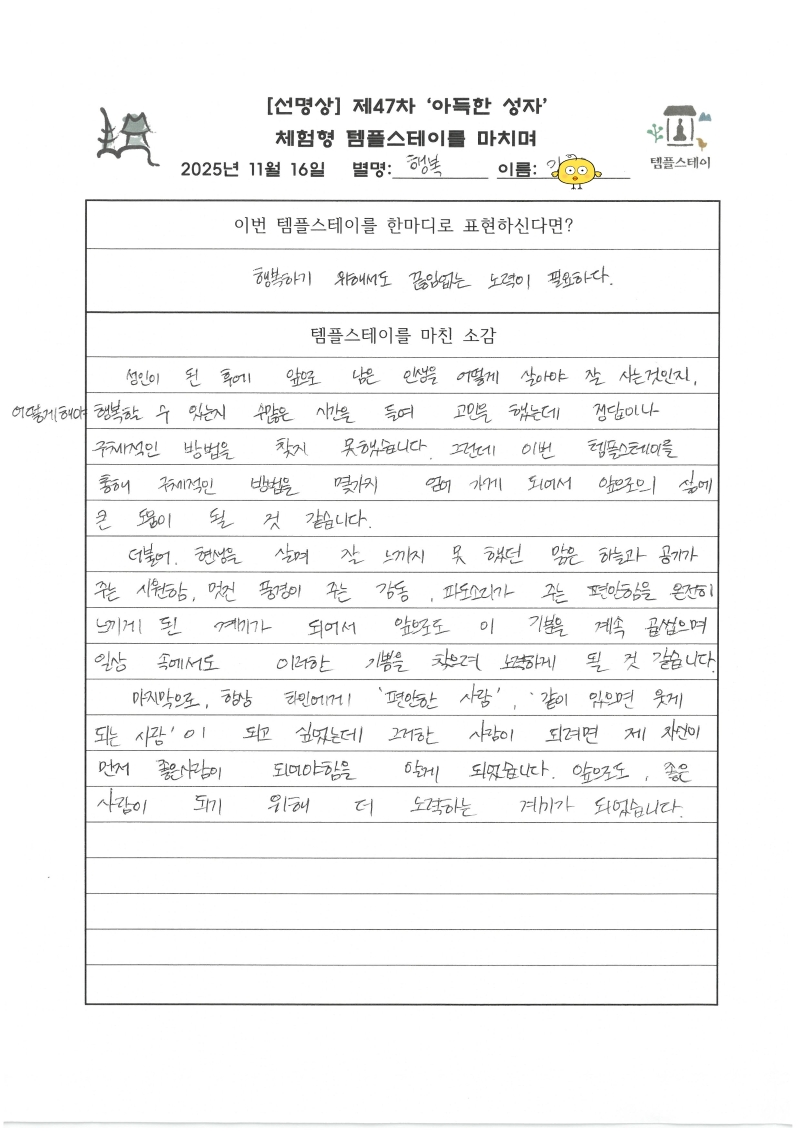 [선명상] 제47차 '아득한 성자'
체험형 템플스테이를 마치며
2025년 11월 16일 별명: 행복 이름:
템플스테이
이번 템플스테이를 한마디로 표현하신다면?
행복하기 위해서도 끊임없는 노력이 필요하다.
템플스테이를 마친 소감
성인이 된 후에 앞으로 남은 인생을 어떻게 살아야 잘 사는것인지,
어떻게해야 행복할 수 있는지 수많은 시간을 들여 고민을 했는데 정답이나
구체적인 방법을 찾지 못했습니다. 그런데 이번 템플스테이를
통해 구체적인 방법을 몇가지 얻어 가게 되어서 앞으로의 삶에
큰 도움이 될 것 같습니다.
더불어, 현생을 살며 잘 느끼지 못 했던 맑은 하늘과 공기가
주는 시원함, 멋진 풍경이 주는 감동, 파도소리가 주는 편안함을 온전히
느끼게 된 계기가 되어서 앞으로도 이 기분을 계속 곱씹으며
일상 속에서도 이러한 기쁨을 찾으려 노력하게 될 것 같습니다.
마지막으로, 항상 타인에게 '편안한 사람', '같이 있으면 웃게
되는 사람'이 되고 싶었는데 그러한 사람이 되려면 제 자신이
먼저 좋은사람이 되어야함을 알게 되었습니다. 앞으로도, 좋은
사람이 되기 위해 더 노력하는 계기가 되었습니다.